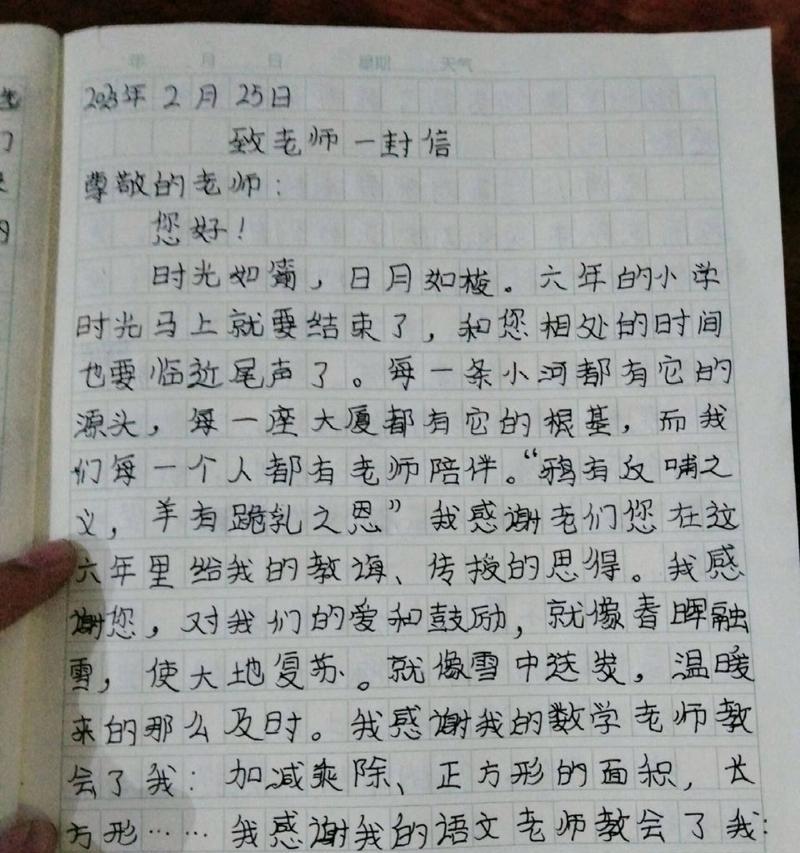 年 月 日 星期 天气
2023年2月25日
致老师一封信
尊敬的老师：
您好！
时光如箭，日月如梭。六年的小学
时光马上就要结束了，和您相处的时间
也要临近尾声了。每一条小河都有它的
源头，每一座大厦都有它的根基，而我
们每一个人都有老师陪伴。“鸦有反哺之
义，羊有跪乳之恩”我感谢老们您在这
六年里给我的教诲、传授的思得。我感
谢您，对我们的爱和鼓励，就像春晖融
雪，使大地复苏。就像雪中送炭，温暖
来的那么及时。我感谢我的数学老师教
会了我：加减乘除、正方形的面积，长
方形……我感谢我的语文老师教会了我：